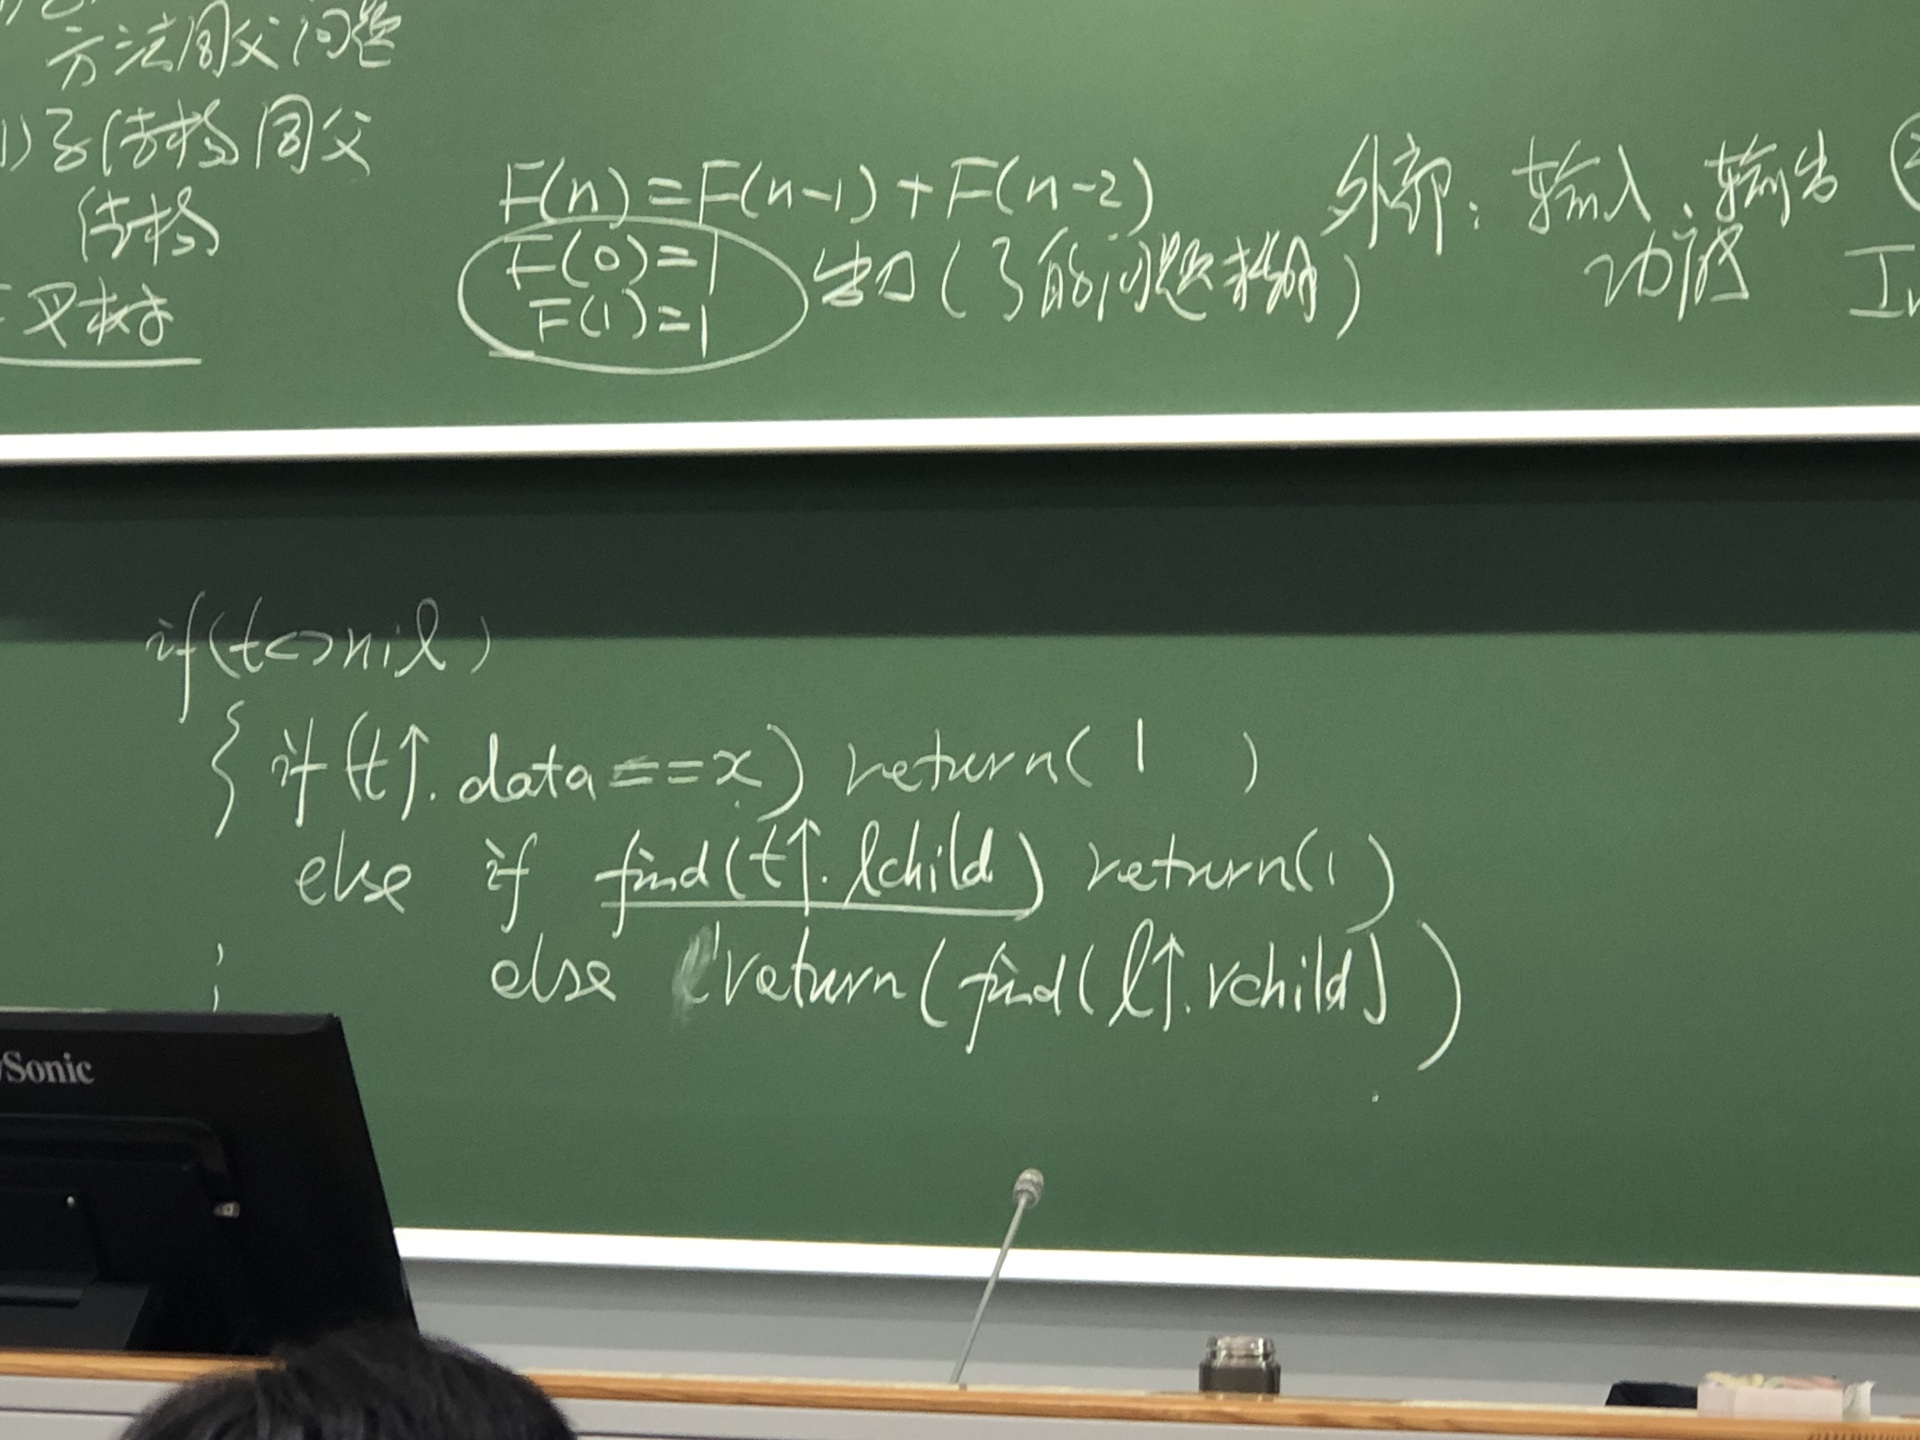 方法同父问题
1)子结构同父
结构
二叉树
F(n)=F(n-1)+F(n-2)
F(0)=1
F(1)=1
出口(了能问题求解)
外部:输入、输出
功能
if(t<>nil)
{ if(t↑.data==x) return(1 )
else if find(t↑.lchild) return(1)
; else return(find(l↑.rchild) )
Sonic